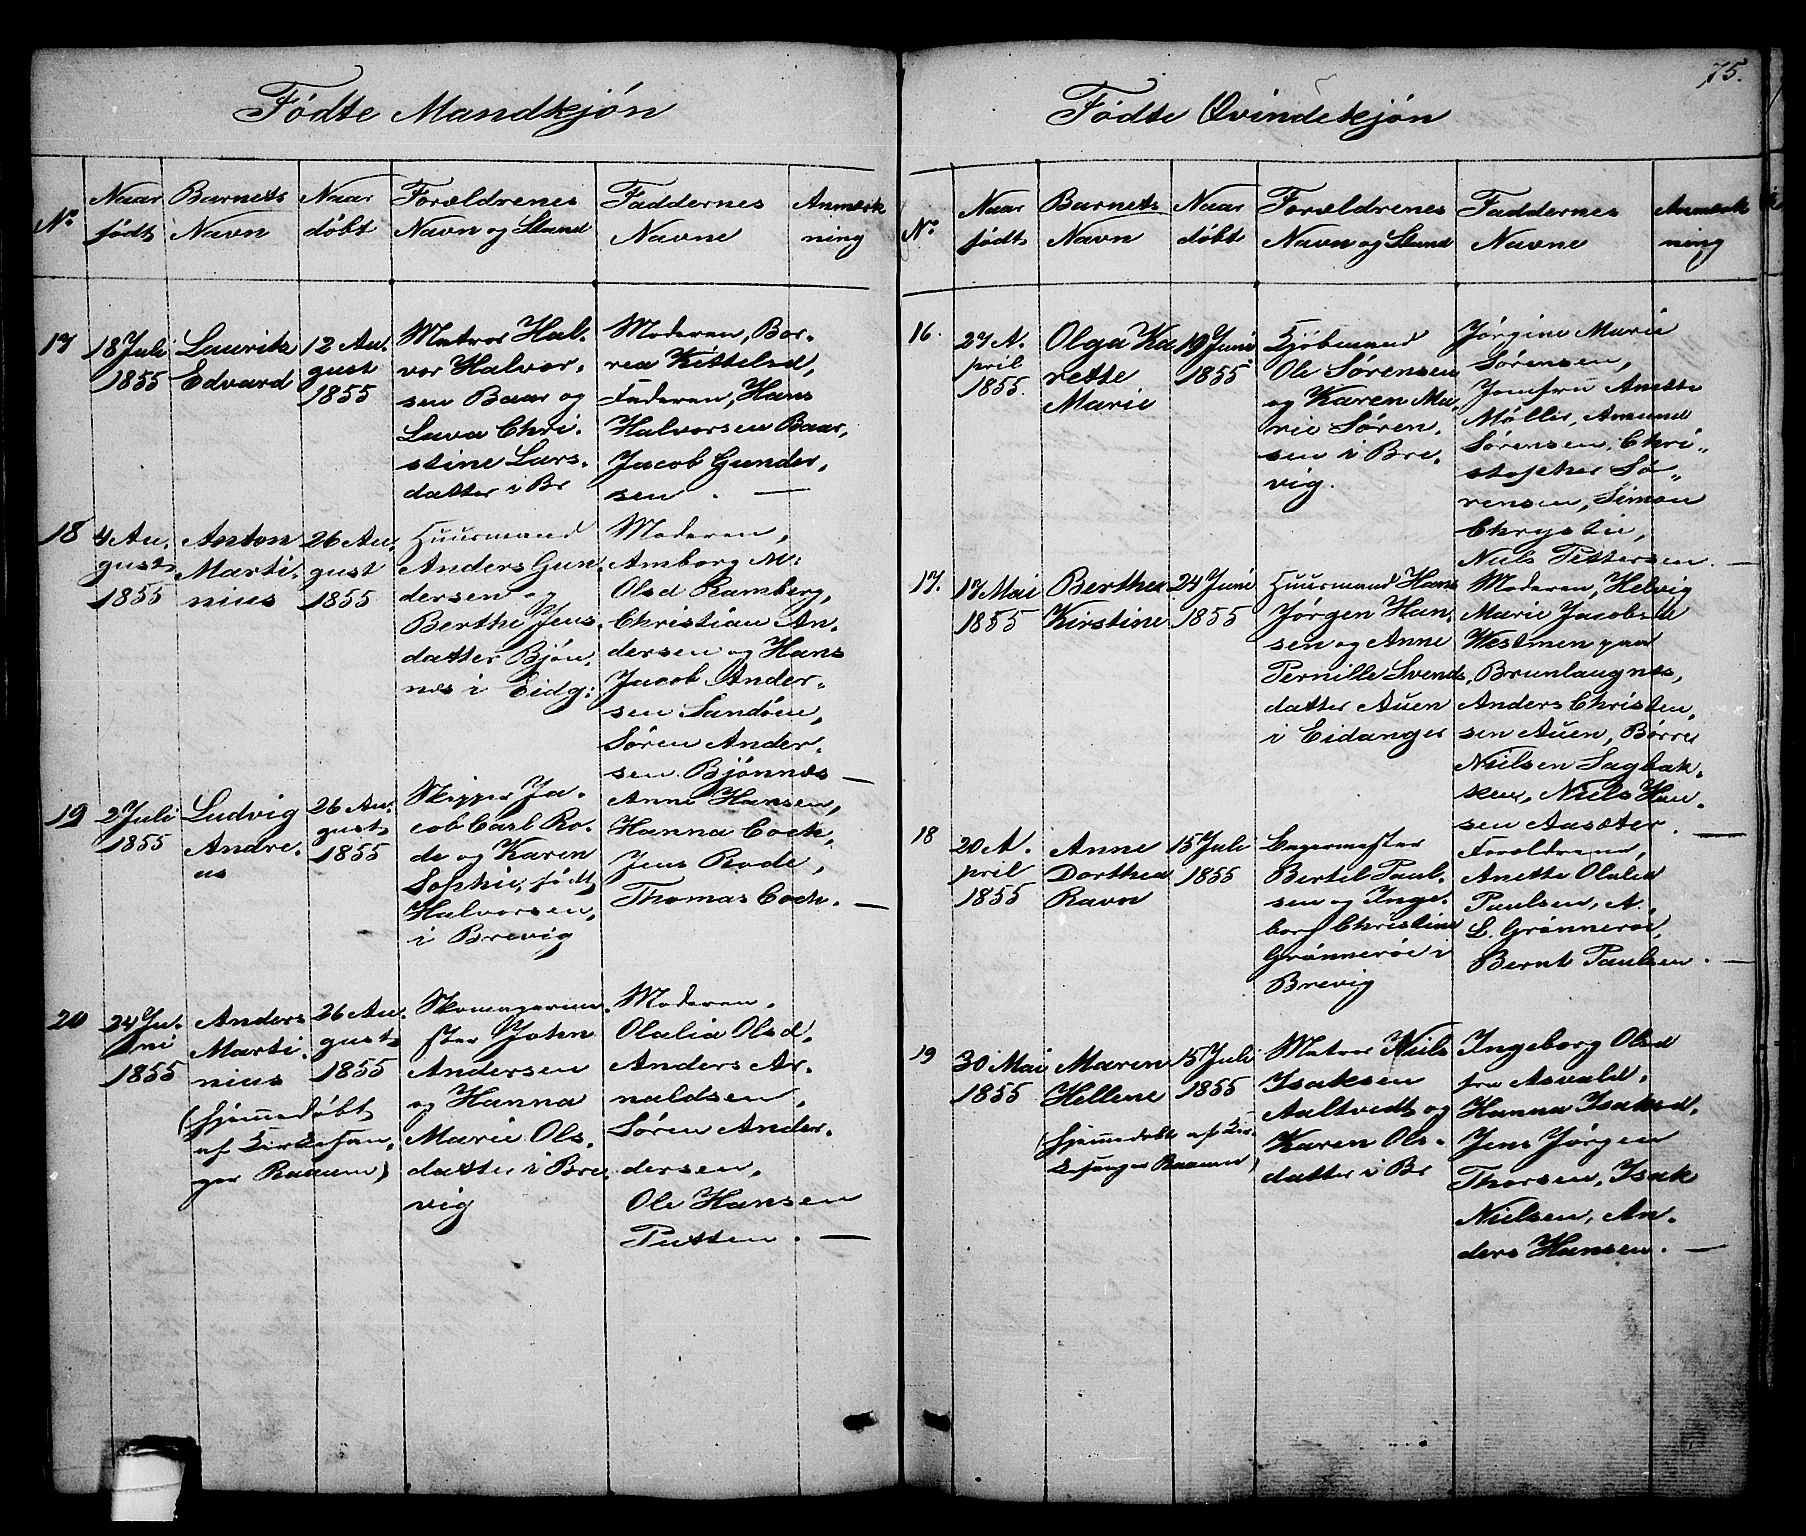 Fødte Mandkjøn
No
Naar
født
Barnets
Navn
Naar
døbt
Forældrenes
Navn og Stand
Faddernes
Navne
Anmærk
ning
17
18 Juli
1855
Lauritz
Edvard
12 Au.
gust
1855
Matros Hal-
vor Halvor-
sen Baar og
Lava Chri-
stine Lars-
datter i Br
Moderen, Bor-
rea Kettelsd,
Faderen, Hans
Halvorsen Baar,
Jacob Gunder,
sen. —
18
4 Au.
gust
1855
Anton
Marti.
nius
26 Au.
gust
1855
Huusmand
Anders Gun
dersen og
Berthe Jens.
datter Bjøn.
næs i Eidg:
Moderen,
Amborg M.
Olsd Ramberg,
Christian An.
dersen og Hans
Jacob Ander-
sen Sandøen,
Søren Ander.
sen Bjønnæs —
19
2 Juli
1855
Ludvig
Andre.
as
26 Au.
gust
1855
Skipper Ja-
cob Carl Ro.
de og Karen
Sophie, født
Halvorsen,
i Brevig
Anne Hansen,
Hanna Coch,
Jens Rode,
Thomas Coch. —
20
24 Ju.
ni
1855
Anders
Marti.
nius
(hjemmedøbt
af Kirkesan,
ger Raaum)
26 Au.
gust
1855
Skomagerme.
ster John
Andersen
og Hanna
Marie Ols.
datter i Bre
vig
Moderen,
Olalia Olsd,
Anders Ar.
naldsen,
Søren Ander.
dersen,
Ole Hansen
Putten. —
75.
Fødte Qvindekjøn
No
Naar
født
Barnets
Navn
Naar
døbt
Forældrenes
Navn og Stand
Faddernes
Navne
Anmærk
ning
16.
27 A.
pril
1855.
Olga Ka
rette
Marie
19 Juni
1855
Kjøbmand
Ole Sørensen
og Karen Ma,
rie Søren.
sen i Bre.
vig.
Jørgine Marie
Sørensen,
Jomfru Anette
Møller, Amund
Sørensen, Chri-
stopher Sø-
rensen, Simon
Chrystie,
Niels Pettersen. —
17.
17 Mai
1855
Berthe
Kirstine
24 Juni
1855
Huusmand Hans
Jørgen Han.
sen og Anne
Pernille Svends.
datter Auen
i Eidanger
Moderen, Helvig
Marie Jacobsen
Westmen paa
Brunlaugnæs,
Anders Christen,
sen Auen, Børre
Nielsen Sagbak.
ken, Niels Han.
sen Aasæter. —
18
20 A.
pril
1855
Anne
Dorthea
Ravn
15 Juli
1855
Bagermester
Bertel Paul.
sen og Inge.
borg Christine
Grønnerøe i
Brevig
Forældrene,
Anette Olalea
Paulsen, A.
L. Grønnerøe,
Bernt Paulsen. —
19
30 Mai
1855
Maren
Hellene
(hjemmedøbt af Kir.
kesanger Raaum)
15 Juli
1855
Matros Niels
Isaksen
Aaltvedt og
Karen Ols-
datter i Br
Ingeborg Olsd
fra Asvald,
Hanna Isaksd,
Jens Jørgen
Thorsen, Isak
Nielsen, An.
ders Hansen. —